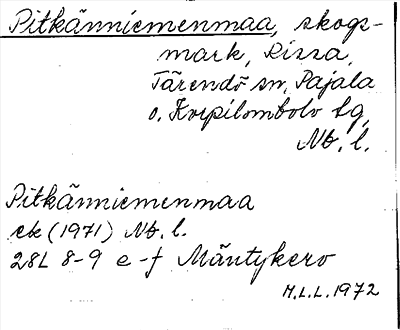 Pitkänniemenmaa, skogs-
mark, Rissa,
Tärendö sn, Pajala
o. Korpilombolo tg,
Nb. l.
Pitkänniemenmaa
ek (1971) Nb. l.
28L 8-9 e-f Mäntykero
M.L.L. 1972